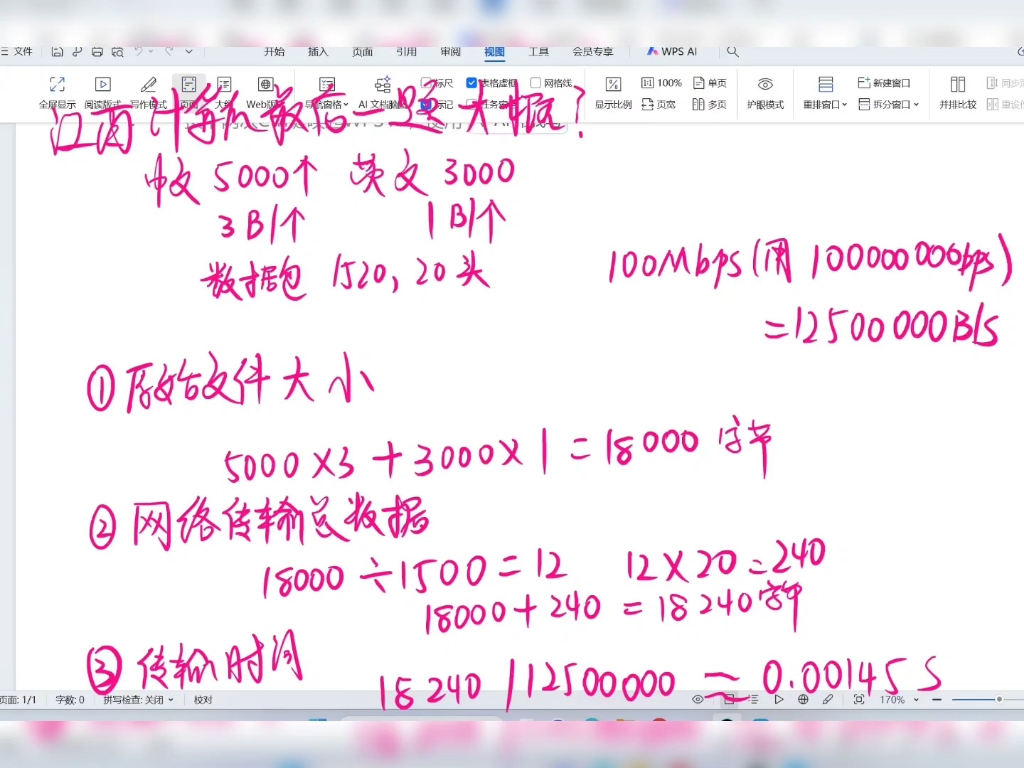 文件 开始 插入 页面 引用 审阅 视图 工具 会员专享 WPS AI
全屏显示 阅读版式 写作模式 页面 大纲 Web版式 导航窗格 AI 文档脑图 标尺 表格虚框 网格线 标记 任务窗格 显示比例 100% 页宽 单页 多页 护眼模式 重排窗口 新建窗口 拆分窗口 并排比较
江西计算机最后一题大概?
中文 5000个 英文 3000
3B/个 1B/个
数据包 1520, 20头
100Mbps(用 100000000bps)
=12500000B/S
①原始文件大小
5000×3+3000×1=18000 字节
②网络传输总数据
18000÷1500=12 12×20=240
18000+240=18240字节
③传输时间
18240/12500000≈0.00145S
页面: 1/1 字数: 0 拼写检查: 关闭 校对 170%